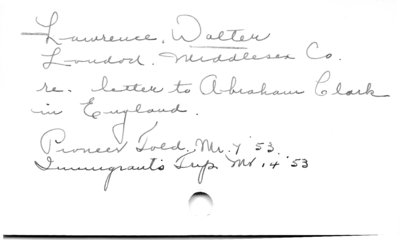 Lawrence, Walter
London. Middlesex Co.
re. letter to Abraham Clark
in England.
Pioneer Told. Mr. 7 '53.
Immigrant's Trip. Mr. 14 '53